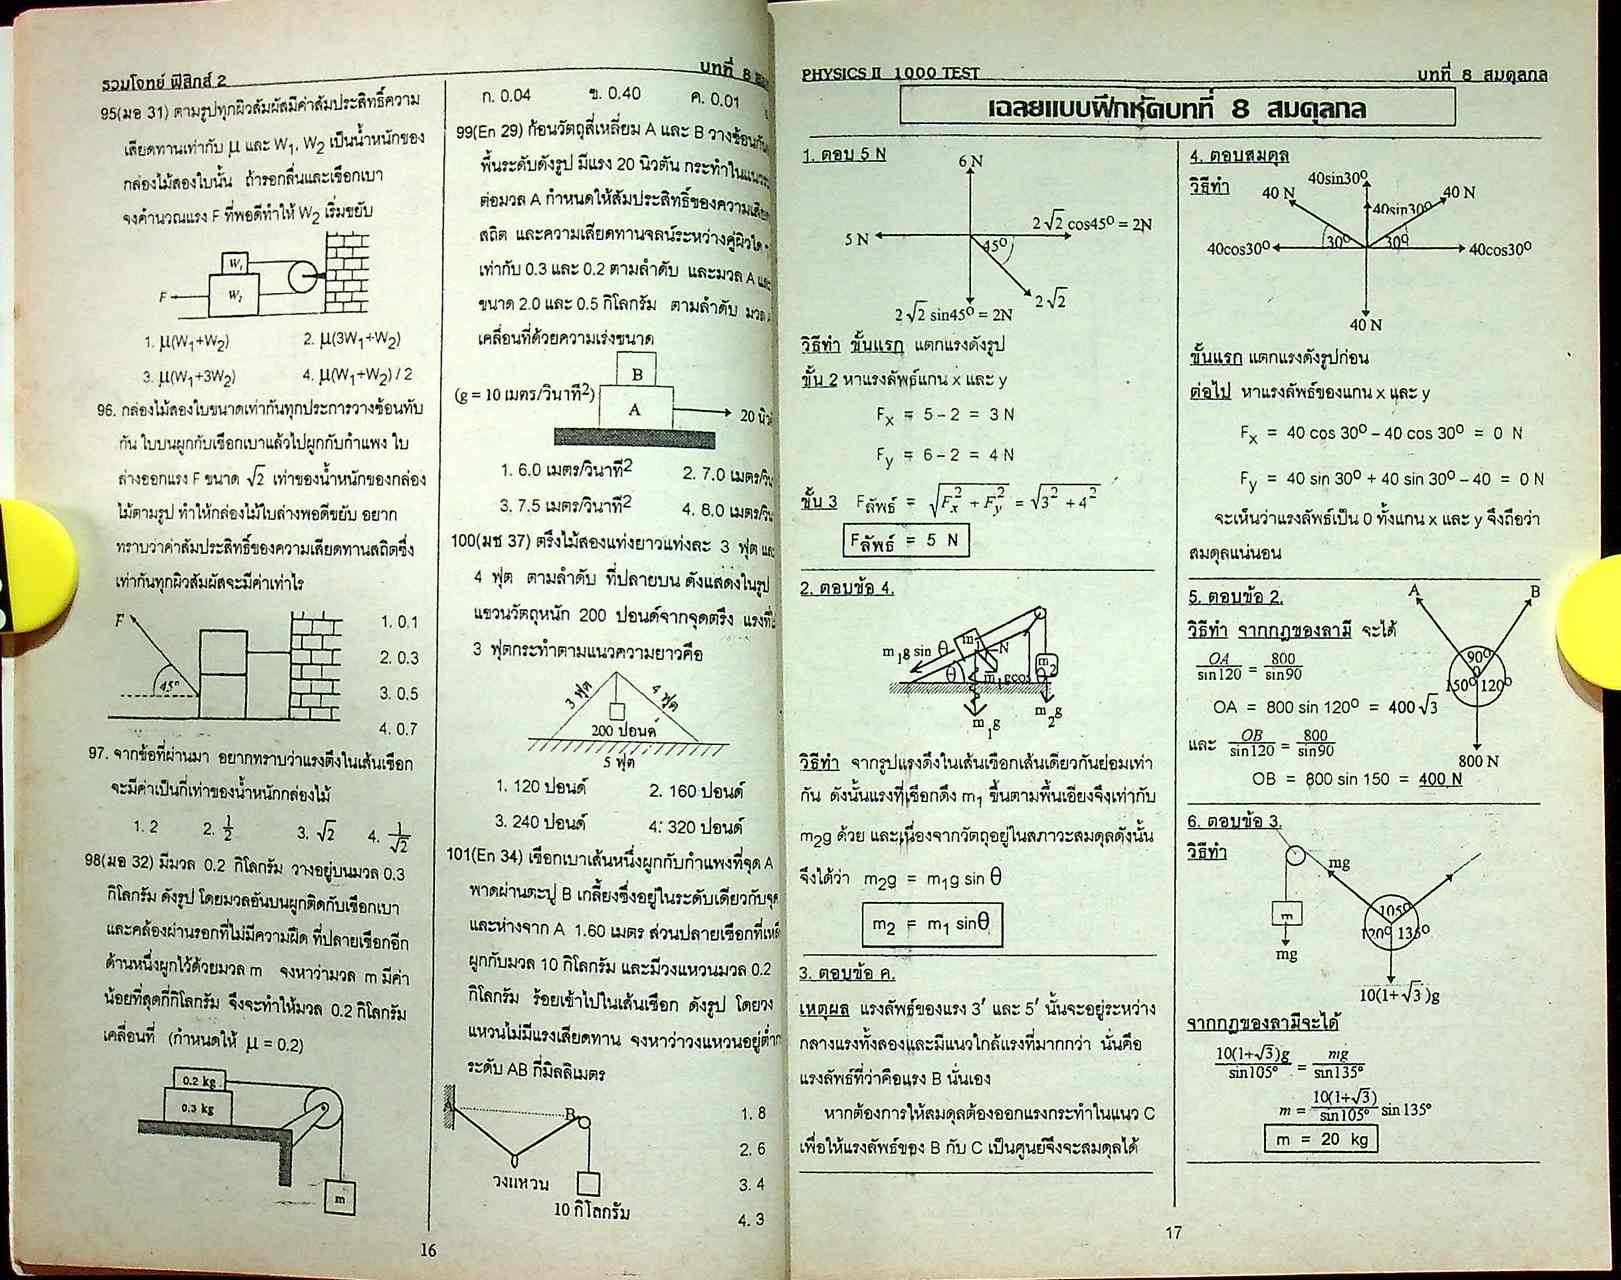 รวมโจทย์ ฟิสิกส์ 2
บทที่ 8
95(มอ 31) ตามรูปทุกผิวสัมผัสมีค่าสัมประสิทธิ์ความ
เสียดทานเท่ากับ μ และ W₁, W₂ เป็นน้ำหนักของ
กล่องไม้สองใบนั้น ถ้ารอกลื่นและเชือกเบา
จงคำนวณแรง F ที่พอดีทำให้ W₂ เริ่มขยับ
W₁
W₂
F
1. μ(W₁+W₂)
2. μ(3W₁+W₂)
3. μ(W₁+3W₂)
4. μ(W₁+W₂) / 2
96. กล่องไม้สองใบขนาดเท่ากันทุกประการวางซ้อนทับ
กัน ใบบนผูกกับเชือกเบาแล้วไปผูกกับกำแพง ใบ
ล่างออกแรง F ขนาด √2 เท่าของน้ำหนักของกล่อง
ไม้ตามรูป ทำให้กล่องไม้ใบล่างพอดีขยับ อยาก
ทราบว่าค่าสัมประสิทธิ์ของความเสียดทานสถิตซึ่ง
เท่ากันทุกผิวสัมผัสจะมีค่าเท่าไร
F
45°
1. 0.1
2. 0.3
3. 0.5
4. 0.7
97. จากข้อที่ผ่านมา อยากทราบว่าแรงตึงในเส้นเชือก
จะมีค่าเป็นกี่เท่าของน้ำหนักกล่องไม้
1. 2
2. 1/2
3. √2
4. 1/√2
98(มอ 32) มีมวล 0.2 กิโลกรัม วางอยู่บนมวล 0.3
กิโลกรัม ดังรูป โดยมวลอันบนผูกติดกับเชือกเบา
และคล้องผ่านรอกที่ไม่มีความฝืด ที่ปลายเชือกอีก
ด้านหนึ่งผูกไว้ด้วยมวล m จงหาว่ามวล m มีค่า
น้อยที่สุดกี่กิโลกรัม จึงจะทำให้มวล 0.2 กิโลกรัม
เคลื่อนที่ (กำหนดให้ μ = 0.2)
0.2 kg
0.3 kg
m
ก. 0.04
ข. 0.40
ค. 0.01
99(En 29) ก้อนวัตถุสี่เหลี่ยม A และ B วางซ้อนกัน
พื้นระดับดังรูป มีแรง 20 นิวตัน กระทำในแนว
ต่อมวล A กำหนดให้สัมประสิทธิ์ของความ
สถิต และความเสียดทานจลน์ระหว่างคู่ผิวใด
เท่ากับ 0.3 และ 0.2 ตามลำดับ และมวล A
ขนาด 2.0 และ 0.5 กิโลกรัม ตามลำดับ มวล
เคลื่อนที่ด้วยความเร่งขนาด
(g = 10 เมตร/วินาที²)
B
A
20
1. 6.0 เมตร/วินาที²
2. 7.0 เมตร/
3. 7.5 เมตร/วินาที²
4. 8.0 เมตร/
100(มช 37) ตรึงไม้สองแท่งยาวแท่งละ 3 ฟุต
4 ฟุต ตามลำดับ ที่ปลายบน ดังแสดงในรูป
แขวนวัตถุหนัก 200 ปอนด์จากจุดตรึง แรงที่
3 ฟุตกระทำตามแนวความยาวคือ
3 ฟุต
4 ฟุต
200 ปอนด์
5 ฟุต
1. 120 ปอนด์
2. 160 ปอนด์
3. 240 ปอนด์
4. 320 ปอนด์
101(En 34) เชือกเบาเส้นหนึ่งผูกกับกำแพงที่จุด A
พาดผ่านตะปู B เกลี้ยงซึ่งอยู่ในระดับเดียวกับ
และห่างจาก A 1.60 เมตร ส่วนปลายเชือกที่
ผูกกับมวล 10 กิโลกรัม และมีวงแหวนมวล 0.2
กิโลกรัม ร้อยเข้าไปในเส้นเชือก ดังรูป โดยวง
แหวนไม่มีแรงเสียดทาน จงหาว่าวงแหวนอยู่ต่ำ
ระดับ AB กี่มิลลิเมตร
A
B
วงแหวน
10 กิโลกรัม
1. 8
2. 6
3. 4
4. 3
16
PHYSICS II 1000 TEST
บทที่ 8 สมดุลกล
เฉลยแบบฝึกหัดบทที่ 8 สมดุลกล
1. ตอบ 5 N
6 N
5 N
2√2 cos45° = 2N
45°
2√2
2√2 sin45° = 2N
วิธีทำ ขั้นแรก แตกแรงดังรูป
ขั้น 2 หาแรงลัพธ์แกน x และ y
Fx = 5 – 2 = 3 N
Fy = 6 – 2 = 4 N
ขั้น 3 Fลัพธ์ = √(Fx² + Fy²) = √(3² + 4²)
Fลัพธ์ = 5 N
2. ตอบข้อ 4.
m₁g sin θ
m₁
N
θ
m₁gcos θ
m₂
m₁g
m₂g
วิธีทำ จากรูปแรงดึงในเส้นเชือกเส้นเดียวกันย่อมเท่า
กัน ดังนั้นแรงที่เชือกดึง m₁ ขึ้นตามพื้นเอียงจึงเท่ากับ
m₂g ด้วย และเนื่องจากวัตถุอยู่ในสภาวะสมดุลดังนั้น
จึงได้ว่า m₂g = m₁g sin θ
m₂ = m₁ sinθ
3. ตอบข้อ ค.
เหตุผล แรงลัพธ์ของแรง 3′ และ 5′ นั้นจะอยู่ระหว่าง
กลางแรงทั้งสองและมีแนวใกล้แรงที่มากกว่า นั่นคือ
แรงลัพธ์ที่ว่าคือแรง B นั่นเอง
หากต้องการให้สมดุลต้องออกแรงกระทำในแนว C
เพื่อให้แรงลัพธ์ของ B กับ C เป็นศูนย์จึงจะสมดุลได้
4. ตอบสมดุล
วิธีทำ
40sin30°
40 N
40 N
40sin30°
30°
30°
40cos30°
40cos30°
40 N
ขั้นแรก แตกแรงดังรูปก่อน
ต่อไป หาแรงลัพธ์ของแกน x และ y
Fx = 40 cos 30° – 40 cos 30° = 0 N
Fy = 40 sin 30° + 40 sin 30° – 40 = 0 N
จะเห็นว่าแรงลัพธ์เป็น 0 ทั้งแกน x และ y จึงถือว่า
สมดุลแน่นอน
5. ตอบข้อ 2.
A
B
วิธีทำ จากกฎของลามี จะได้
OA/sin120 = 800/sin90
90°
0
150°
120°
OA = 800 sin 120° = 400√3
และ OB/sin120 = 800/sin90
800 N
OB = 800 sin 150 = 400 N
6. ตอบข้อ 3.
วิธีทำ
mg
105°
m
120°
135°
mg
10(1+√3)g
จากกฎของลามีจะได้
10(1+√3)g/sin105° = mg/sin135°
m = 10(1+√3)/sin105° sin135°
m = 20 kg
17